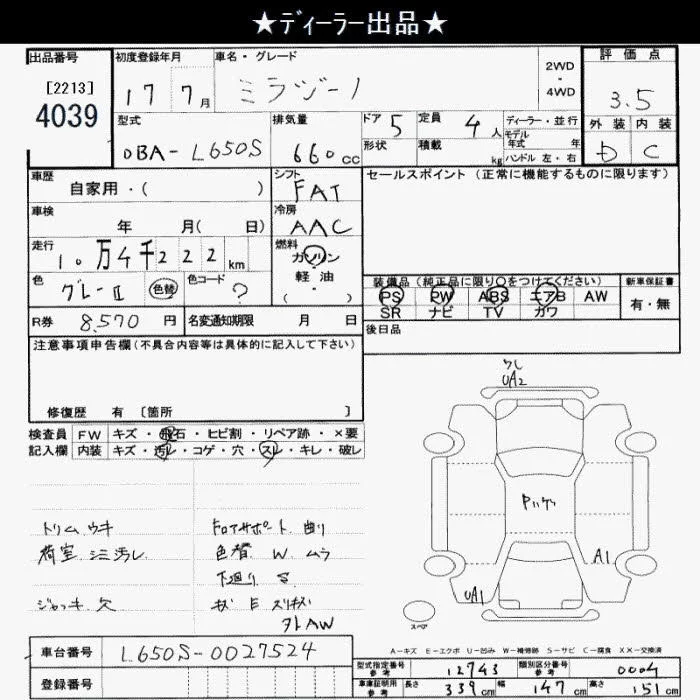 ★ディーラー出品★
出品番号 初度登録年月 車名・グレード 2WD・4WD 評価点
[2213] 4039
17 7月 ミラジーノ 3.5
型式 排気量 ドア 5 定員 4人 ディーラー・並行 外装 内装
DBA-L650S 660cc 形状 積載 kg モデル年式 年 ハンドル 左・右 D C
車歴 シフト セールスポイント (正常に機能するものに限ります)
自家用・( ) FAT
車検 冷房
年 月( 日) AAC
走行 燃料
10万4千222km ガソリン
軽油
・( )
色 色替 色コード 装備品 (純正品に限り○をつけてください) 新車保証書
グレーII ? PS PW ABS エアB AW 有・無
SR ナビ TV カワ
R券 8,570円 名変通知期限 月 日
後日品
注意事項申告欄(不具合内容等は具体的に記入して下さい)
修復歴 有 [箇所 ]
検査員 FW キズ・飛石・ヒビ割・リペア跡・×要
記入欄 内装 キズ・汚レ・コゲ・穴・スレ・キレ・破レ
ワレ
UA2
Pハゲ
A1
UA1
スペア
トリム ウキ フロアサポート 曲り
荷室 シミ汚レ 色替 W ムラ
下廻り S
ジャッキ欠 キズ E スリキズ
外AW
A－キズ E－エクボ U－凹み W－補修跡 S－サビ C－腐食 XX－交換済
車台番号 L650S-0027524
登録番号
型式指定番号 参考 12743 類別区分番号 参考 0004
車庫証明用 参考 長さ 339cm 幅 147cm 高さ 151cm